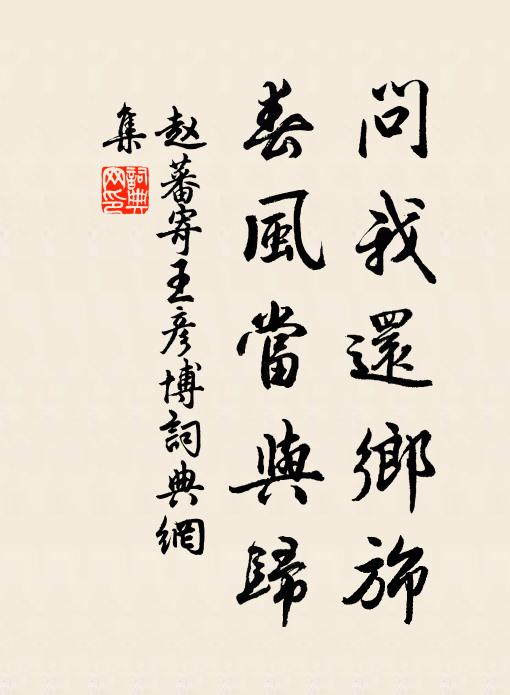 問我還鄉旆
春風當與歸
赵蕃寄王彦博詞典網
集
詞典
网印